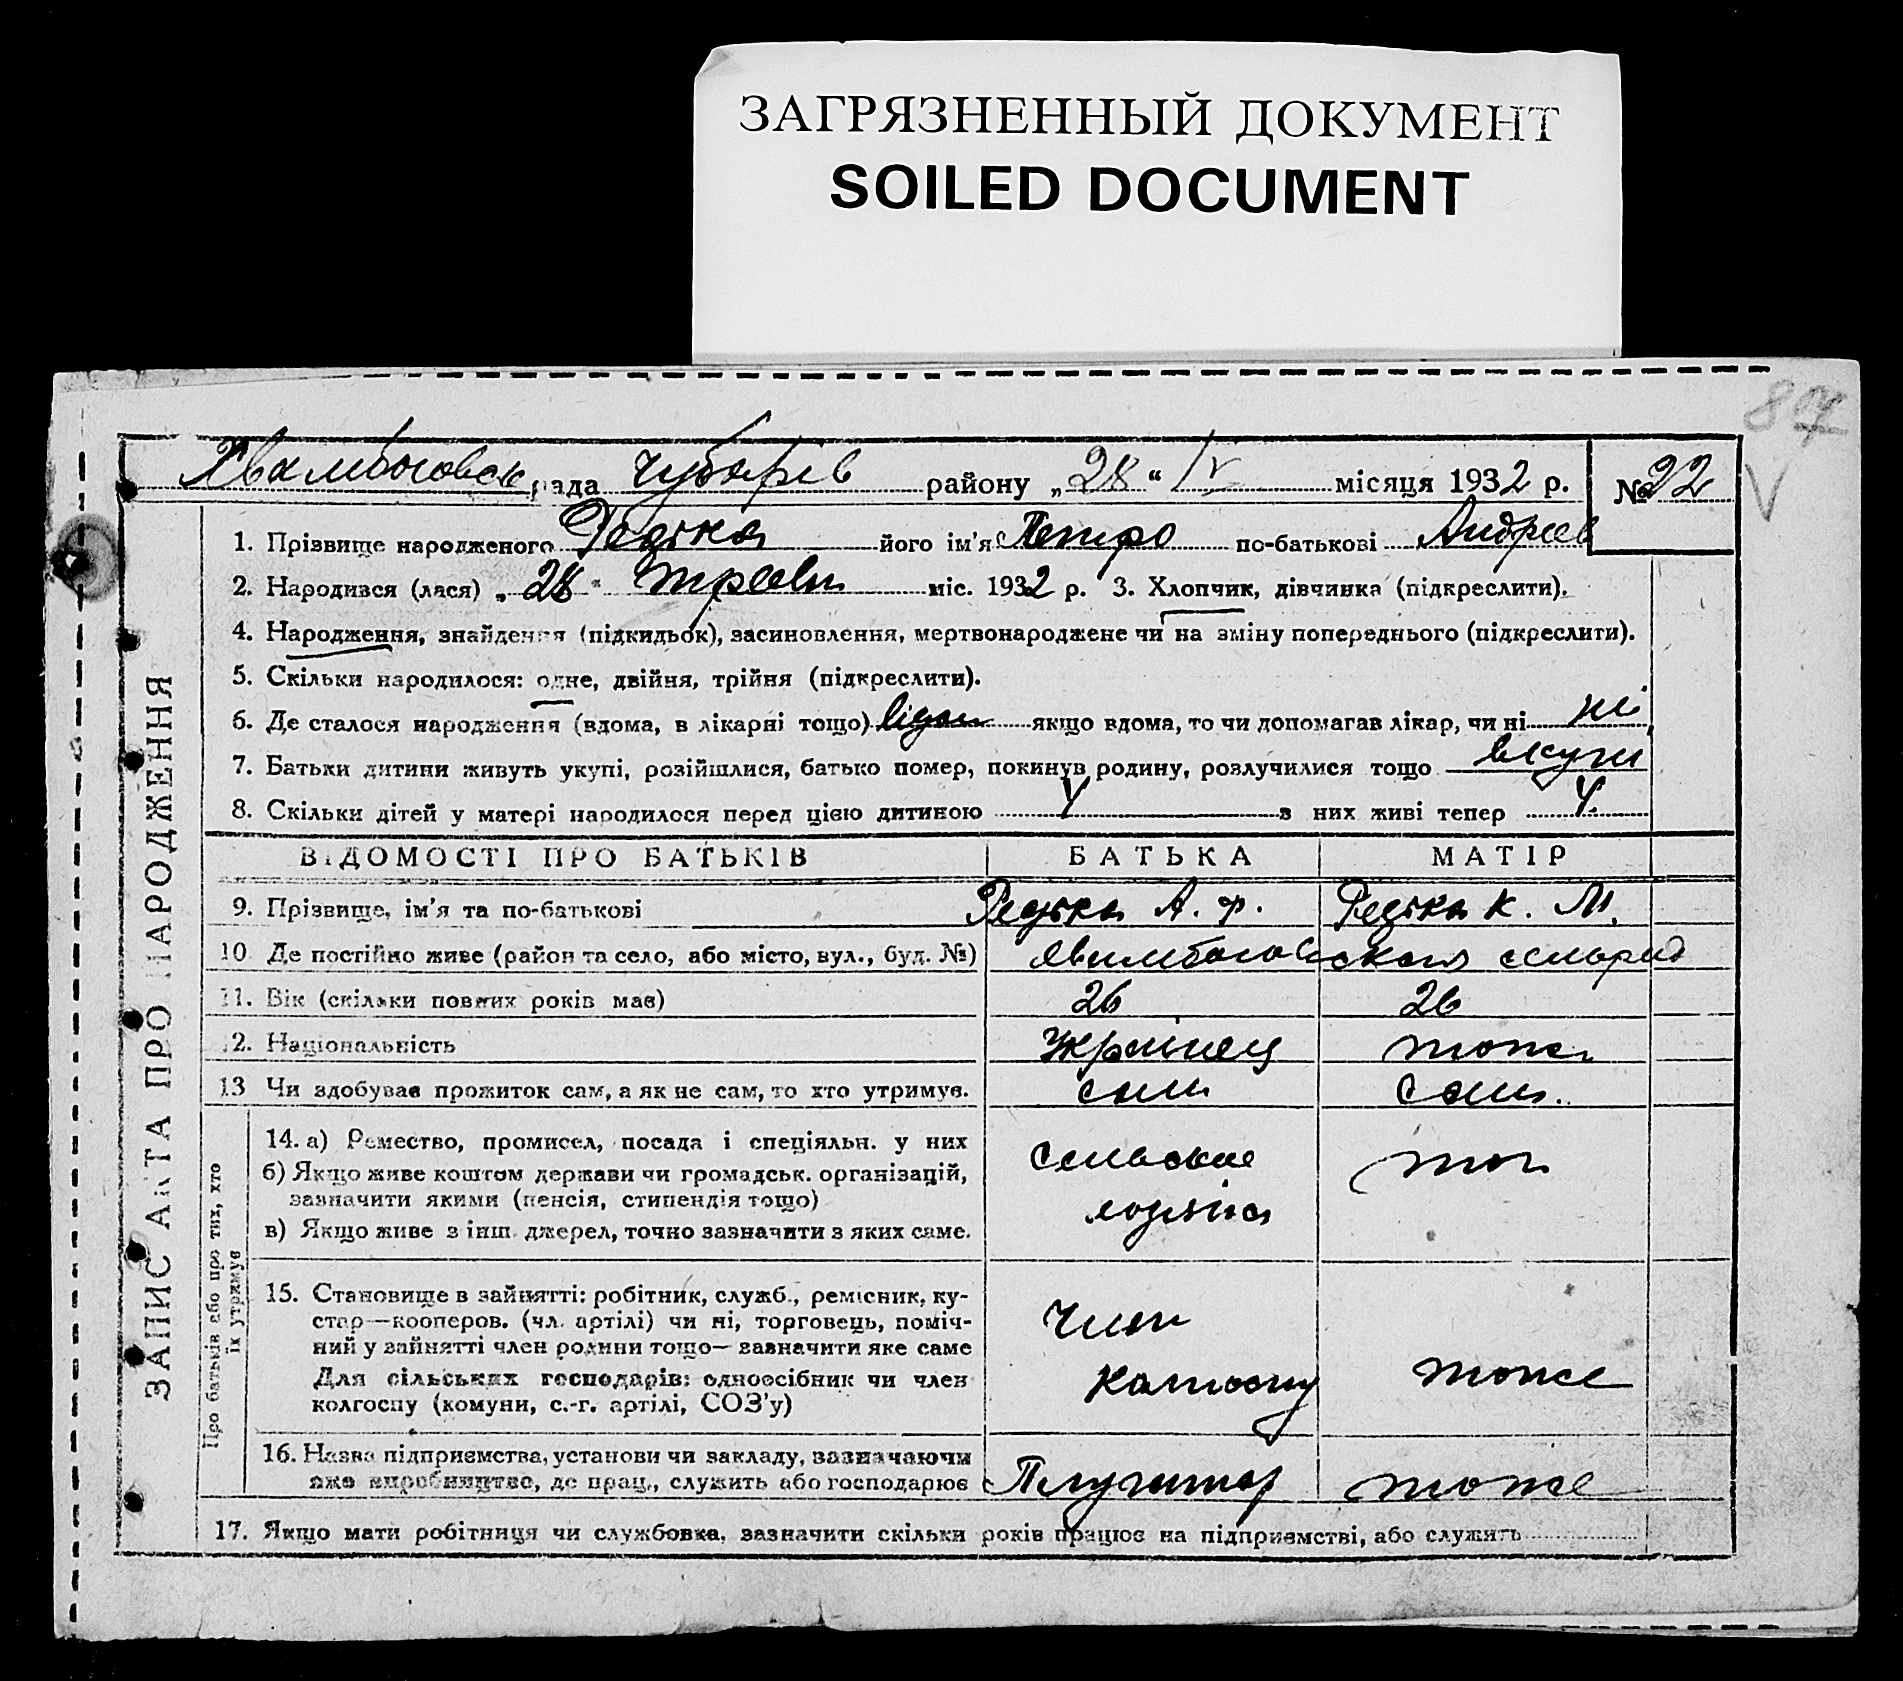 ЗАГРЯЗНЕННЫЙ ДОКУМЕНТ
SOILED DOCUMENT
87
рада Чубарів району „28“ IV місяця 1932 р. № 22
V
ЗАПИС АКТА ПРО НАРОДЖЕННЯ
1. Прізвище народженого Редька його ім'я Петро по-батькові Андреев
2. Народився (лася) „28“ травн міс. 1932 р. 3. Хлопчик, дівчинка (підкреслити).
4. Народження, знайдення (підкидьок), засиновлення, мертвонароджене чи на зміну попереднього (підкреслити).
5. Скільки народилося: одне, двійня, трійня (підкреслити).
6. Де сталося народження (вдома, в лікарні тощо) вдом якщо вдома, то чи допомагав лікар, чи ні ні
7. Батьки дитини живуть укупі, розійшлися, батько помер, покинув родину, розлучилися тощо вкупи
8. Скільки дітей у матері народилося перед цією дитиною 4 з них живі тепер 4.
ВІДОМОСТІ ПРО БАТЬКІВ БАТЬКА МАТІР
9. Прізвище, ім'я та по-батькові Редька А. Ф. Редька К. М.
10 Де постійно живе (район та село, або місто, вул., буд. №) сельрад
11. Вік (скільки повних років має) 26 26
12. Національність Украінец тоже
13 Чи здобуває прожиток сам, а як не сам, то хто утримує. сам сам.
Про батьків або про тих, хто
їх утримує
14. а) Ремество, промисел, посада і спеціяльн. у них сельское
б) Якщо живе коштом держави чи громадськ. організацій,
зазначити якими (пенсія, стипендія тощо)
в) Якщо живе з інш. джерел, точно зазначити з яких саме.
15. Становище в зайнятті: робітник, служб., ремісник, ку-
стар—кооперов. (чл. артілі) чи ні, торговець, поміч- Член
ний у зайнятті член родини тощо— зазначити яке саме
Для сільських господарів: одноосібник чи член колгоспу тоже
колгоспу (комуни, с.-г. артілі, СОЗ'у)
16. Назва підприємства, установи чи закладу, зазначаючи
яке виробництво, де прац., служить або господарює Плугатар тоже
17. Якщо мати робітниця чи службовка, зазначити скільки років працює на підприємстві, або служить